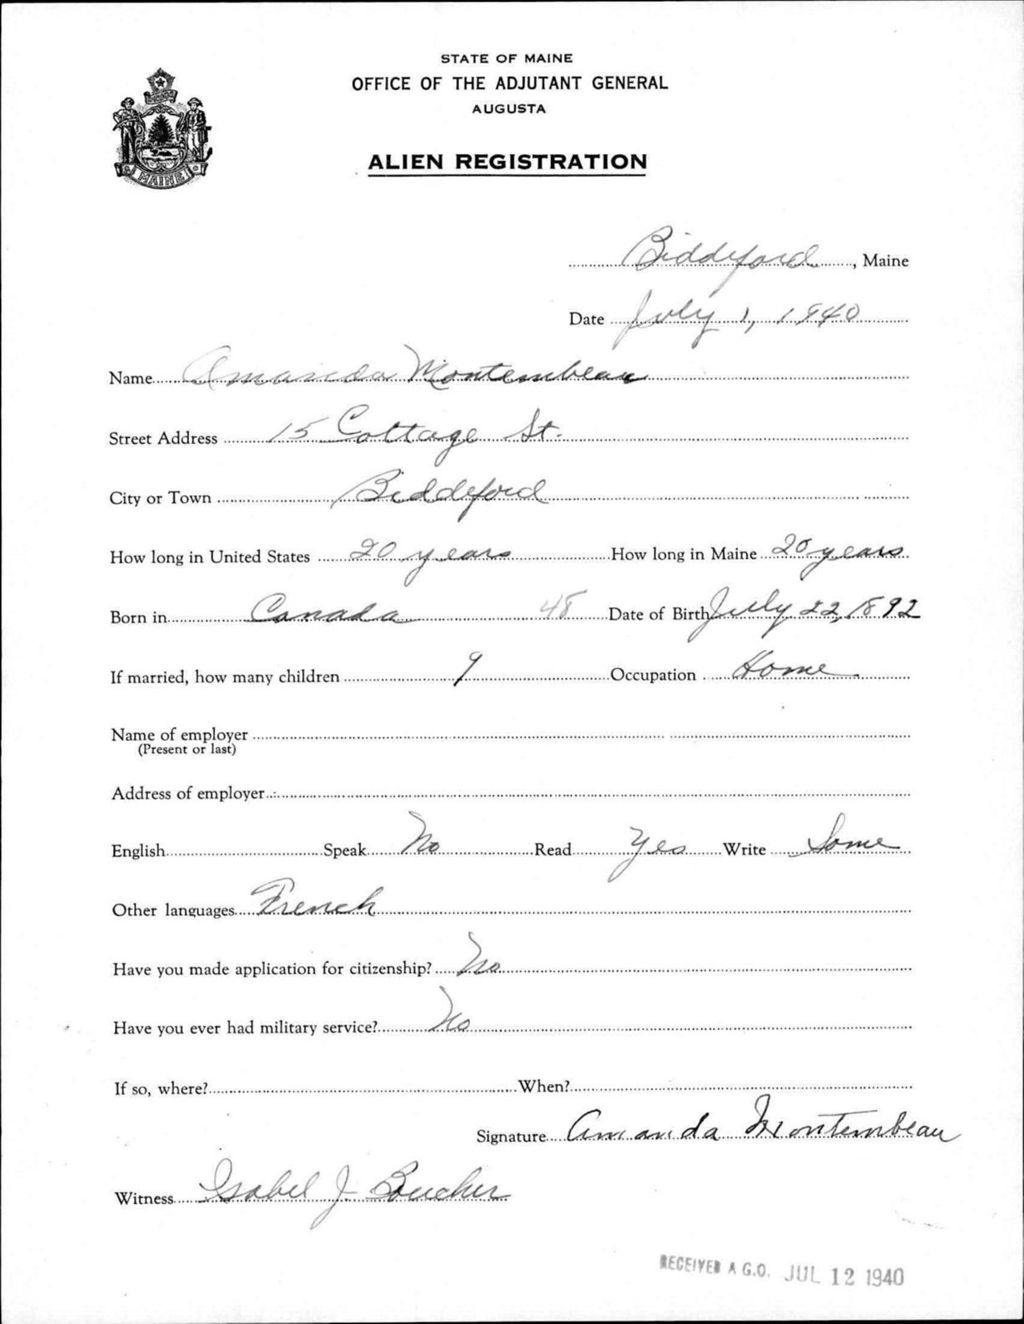 STATE OF MAINE
OFFICE OF THE ADJUTANT GENERAL
AUGUSTA
ALIEN REGISTRATION
MAINE
Biddeford, Maine
Date July 1, 1940
Name Amanda Montembeau
Street Address 15 Cottage St.
City or Town Biddeford
How long in United States 20 years How long in Maine 20 years
Born in Canada 48 Date of Birth July 22, 1892
If married, how many children 9 Occupation Home
Name of employer
(Present or last)
Address of employer
English Speak No Read Yes Write Some
Other languages French
Have you made application for citizenship? No
Have you ever had military service? No
If so, where? When?
Signature Amanda Montembeau
Witness Isabel J Boucher
RECEIVED A.G.O. JUL 12 1940